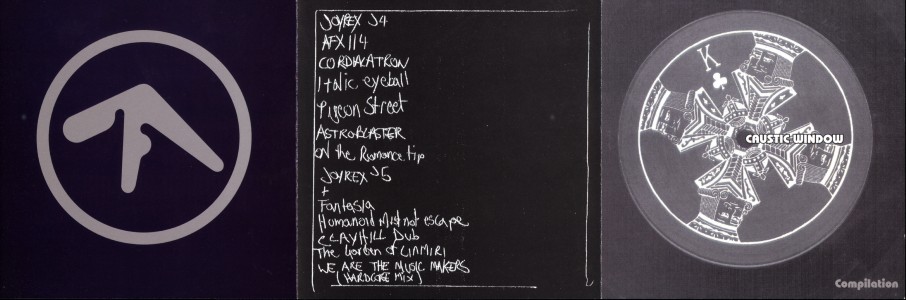 JOYREX J4
AFX 114
CORDIALATRON
Italic eyeball
Pigeon Street
ASTROBLASTER
ON the Romance tip
JOYREX J5
+
Fantasia
Humanoid Must not escape
CLAYHILL Dub
The Garden of LINMIRI
WE ARE THE MUSIC MAKERS
(HARDCORE MIX)
K
CAUSTIC WINDOW
Compilation